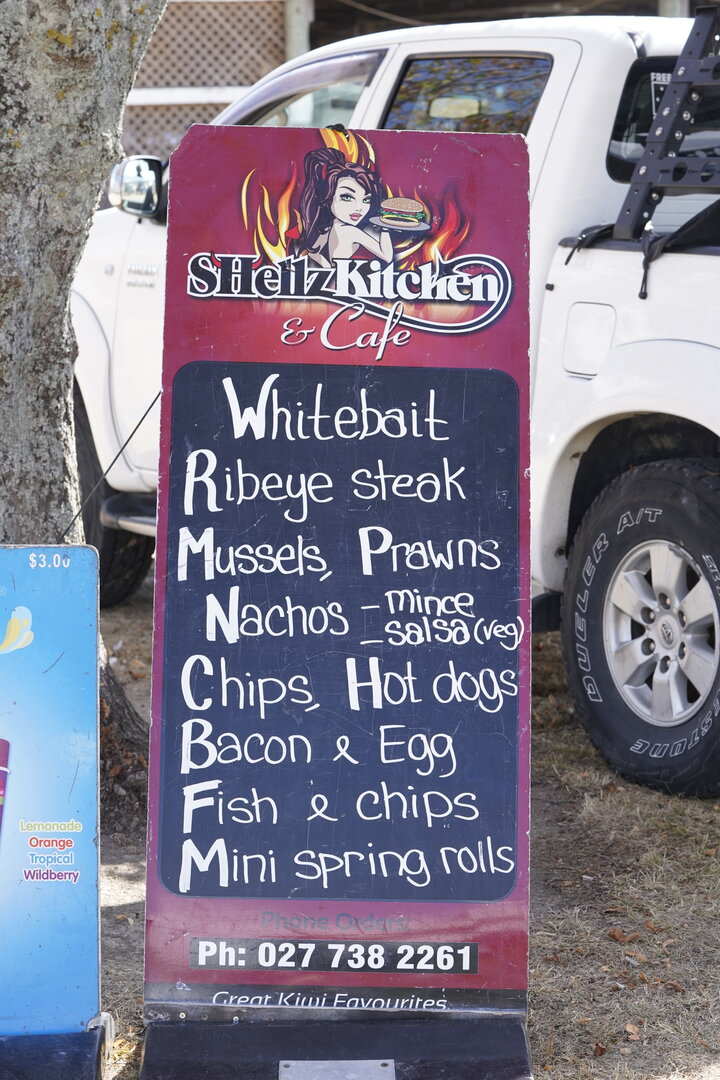 FREE
SHellzKitchen
& Cafe
Whitebait
Ribeye steak
Mussels, Prawns
Nachos - mince
- salsa (veg)
Chips, Hot dogs
Bacon & Egg
Fish & chips
Mini spring rolls
Phone Orders
Ph: 027 738 2261
Great Kiwi Favourites
$3.00
Lemonade
Orange
Tropical
Wildberry
DUELER A/T
STONE